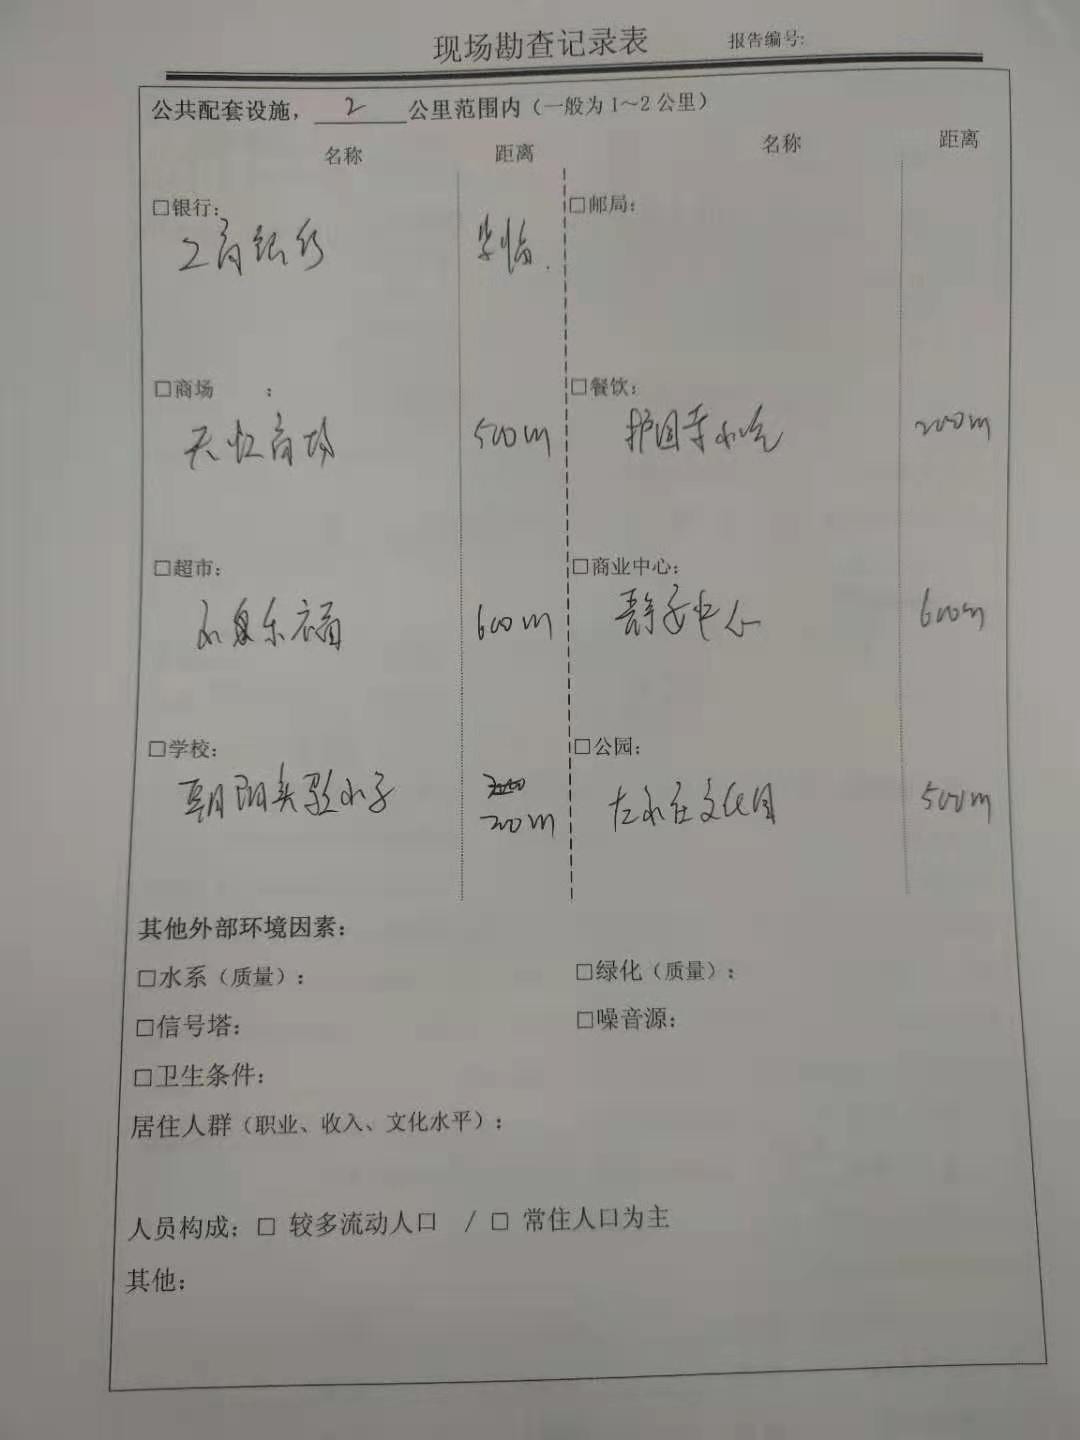 现场勘查记录表 报告编号:
公共配套设施，2公里范围内（一般为1～2公里）
名称 距离 名称 距离
□银行： □邮局：
工商银行
□商场 ： □餐饮：
天虹商场 500m 护国寺小吃 200m
□超市： □商业中心：
600m 静安中心 600m
□学校： □公园：
朝阳实验小学 200m 左家庄文化园 500m
其他外部环境因素：
□水系（质量）： □绿化（质量）：
□信号塔： □噪音源：
□卫生条件：
居住人群（职业、收入、文化水平）：
人员构成：□ 较多流动人口 / □ 常住人口为主
其他：